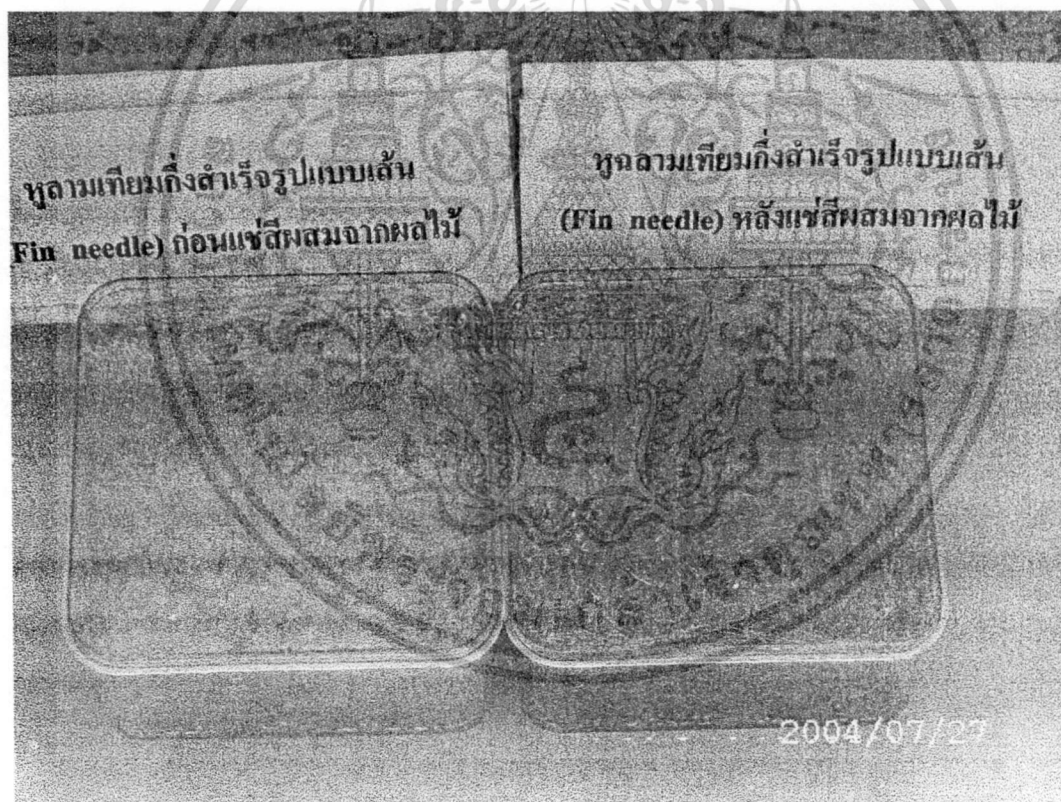 หูลามเทียมกึ่งสำเร็จรูปแบบเส้น
Fin needle) ก่อนแช่สีผสมจากผลไม้
หูฉลามเทียมกึ่งสำเร็จรูปแบบเส้น
(Fin needle) หลังแช่สีผสมจากผลไม้
2004/07/27